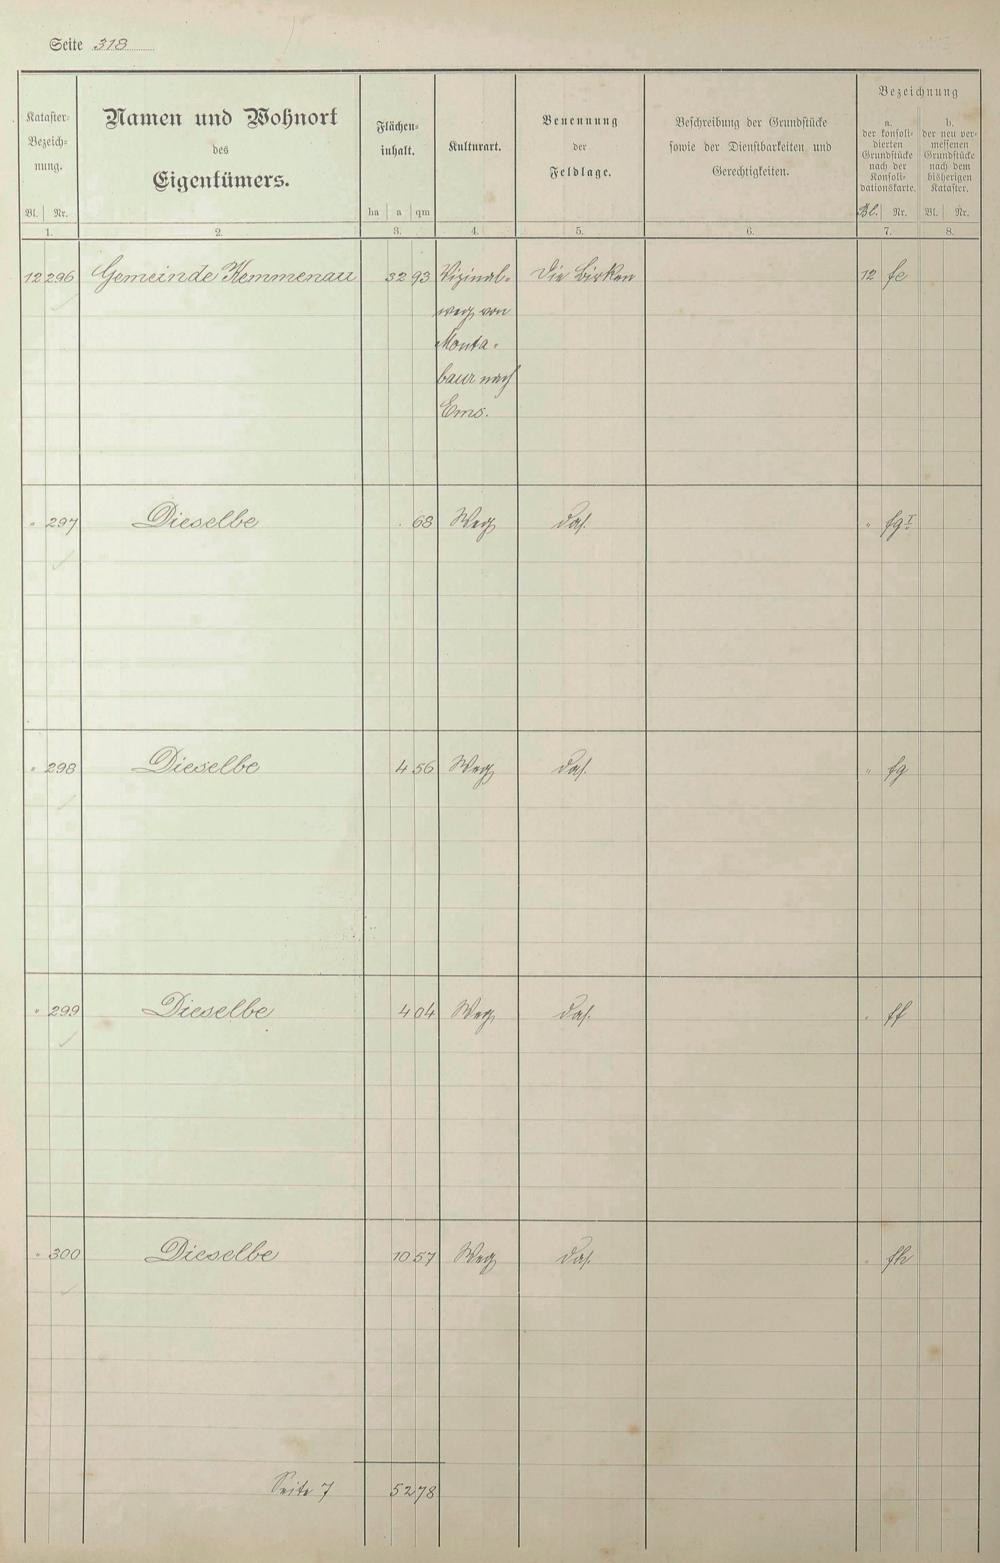 Seite 318
Kataster-Bezeichnung. Namen und Wohnort des Eigentümers. Flächeninhalt. Kulturart. Benennung der Feldlage. Beschreibung der Grundstücke sowie der Dienstbarkeiten und Gerechtigkeiten. Bezeichnung
a. der konsolidierten Grundstücke nach der Konsolidationskarte. b. der neu vermessenen Grundstücke nach dem bisherigen Kataster.
Bl. Nr. ha a qm Bl. Nr. Bl. Nr.
1. 2. 3. 4. 5. 6. 7. 8.
12 296 Gemeinde Kemmenau 32 93 Vizinal- Die Birken 12 fe
weg von
Monta-
baur nach
Ems.
" 297 Dieselbe . 68 Weg das. " fg I
" 298 Dieselbe 4 56 Weg das. " fg
" 299 Dieselbe 4 04 Weg das. " ff
" 300 Dieselbe 10 57 Weg das. " fh
Seite 7 52 78